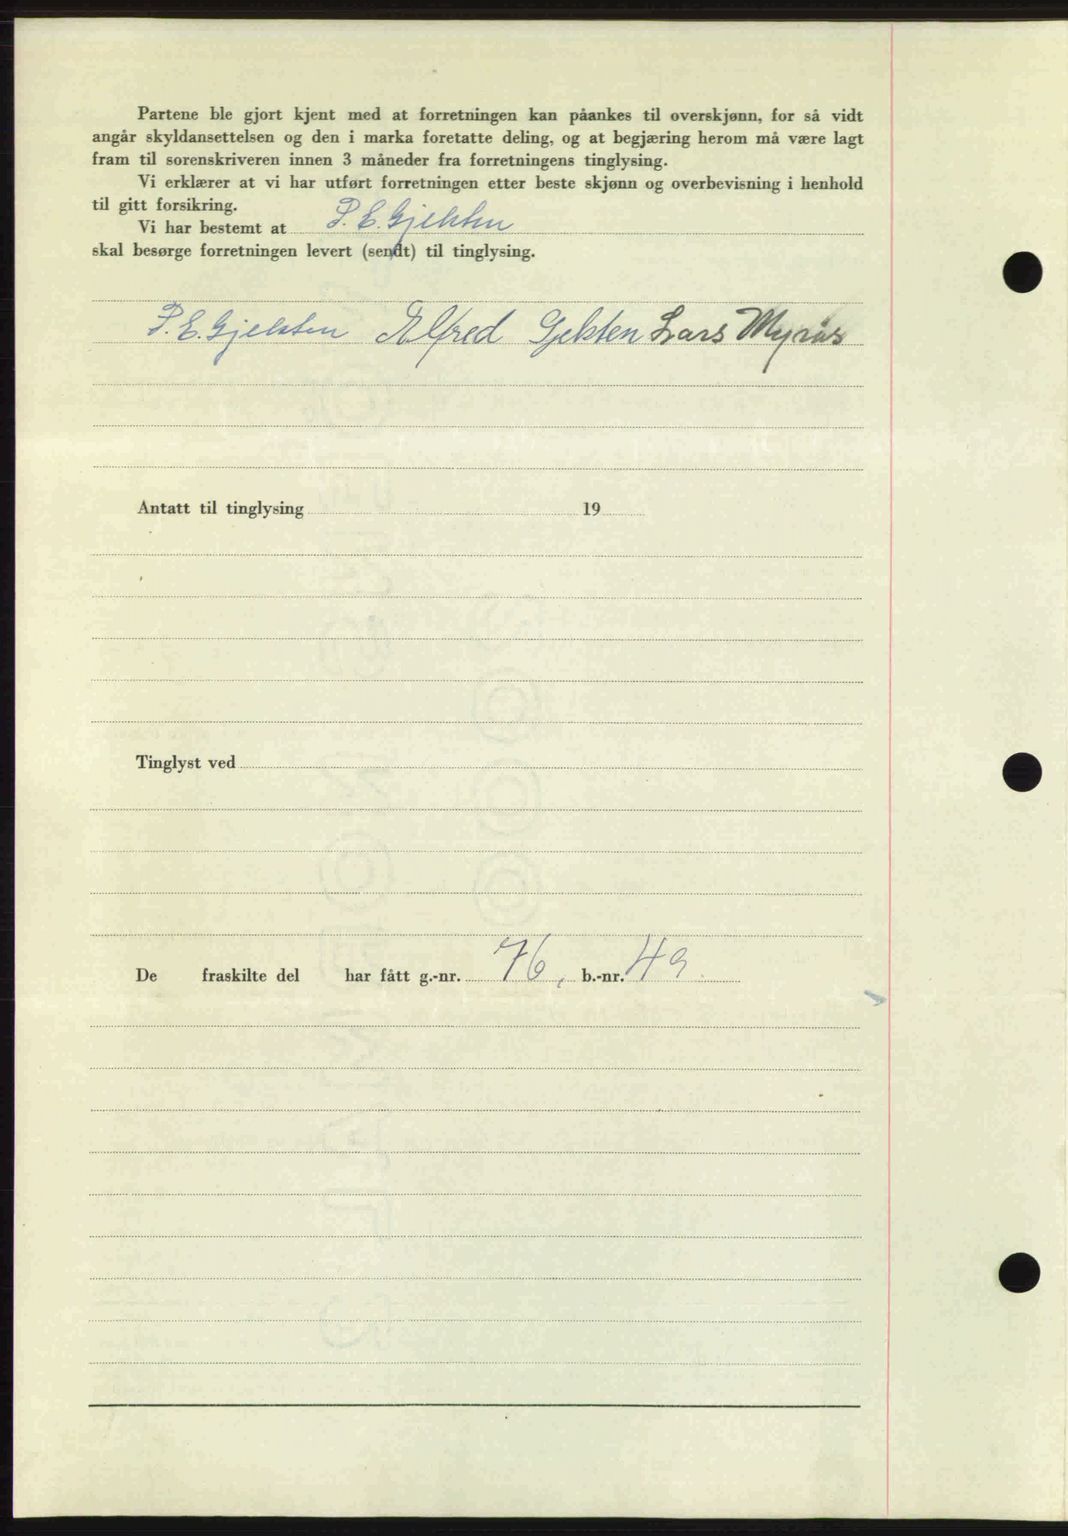 Partene ble gjort kjent med at forretningen kan påankes til overskjønn, for så vidt
angår skyldansettelsen og den i marka foretatte deling, og at begjæring herom må være lagt
fram til sorenskriveren innen 3 måneder fra forretningens tinglysing.
Vi erklærer at vi har utført forretningen etter beste skjønn og overbevisning i henhold
til gitt forsikring.
Vi har bestemt at P. E. Gjeksten
skal besørge forretningen levert (sendt) til tinglysing.
P. E. Gjeksten Alfred Gjeksten Lars Myrås
Antatt til tinglysing 19
Tinglyst ved
De fraskilte del har fått g.-nr. 76, b.-nr. 49.